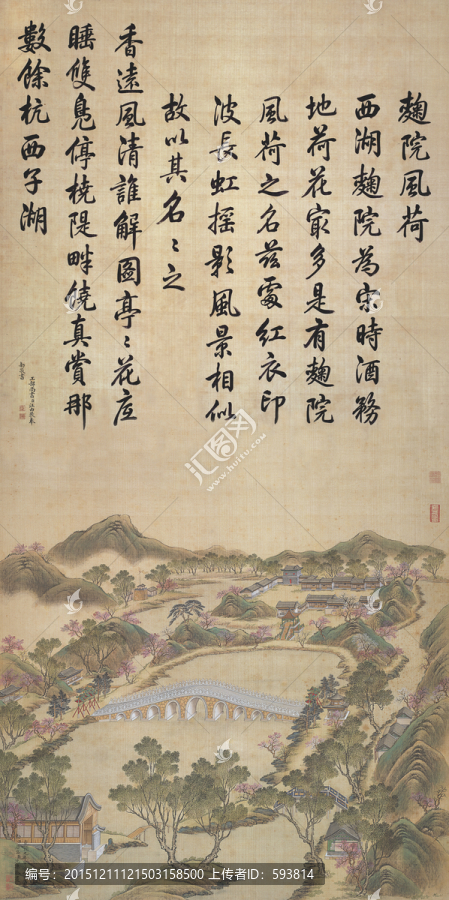 麹院風荷
西湖麹院為宋時酒務
地荷花㝡多是有麹院
風荷之名茲處紅衣印
波長虹搖影風景相似
故以其名名之
香遠風清誰解圖亭亭花底
睡雙鳧停橈隄畔饒真賞那
數餘杭西子湖
工部尚書臣汪由敦奉
敕敬書
汇图网
www.huitu.com
编号:20151211121503158500 上传者ID:593814